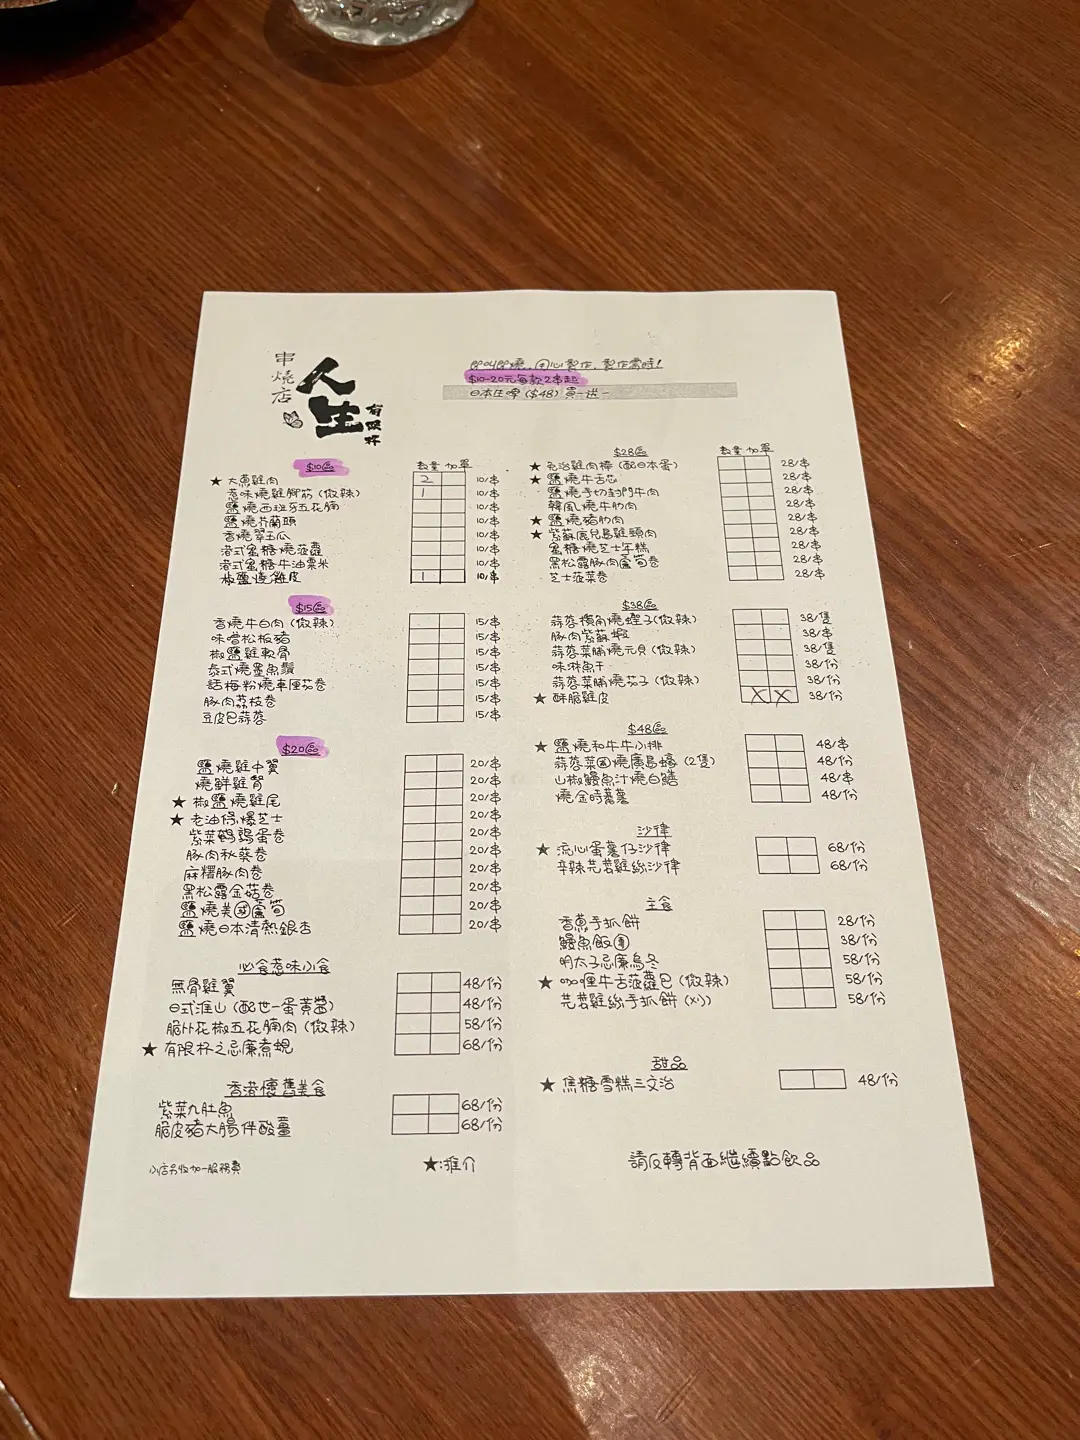 串燒店
人生
有限杯
即叫即燒,用心製作,製作需時!
$10-20元每款2串起
日本生啤($48)買一送一
$10區 數量 加單
★大蔥雞肉 2 10/串
惹味燒雞腳筋(微辣) 1 10/串
鹽燒西班牙五花腩 10/串
鹽燒芥蘭頭 10/串
香燒翠玉瓜 10/串
港式蜜糖燒菠蘿 10/串
港式蜜糖牛油粟米 10/串
椒鹽燒雞皮 1 10/串
$15區
香燒牛白肉(微辣) 15/串
味噌松板豬 15/串
椒鹽雞軟骨 15/串
泰式燒墨魚鬚 15/串
話梅粉燒車厘茄卷 15/串
豚肉荔枝卷 15/串
豆皮巴蒜蓉 15/串
$20區
鹽燒雞中翼 20/串
燒鮮雞腎 20/串
★椒鹽燒雞尾 20/串
★老油條爆芝士 20/串
紫菜鵪鶉蛋卷 20/串
豚肉秋葵卷 20/串
麻糬豚肉卷 20/串
黑松露金菇卷 20/串
鹽燒美國蘆筍 20/串
鹽燒日本清熱銀杏 20/串
必食惹味小食
無骨雞翼 48/份
日式淮山(配世一蛋黃醬) 48/份
脆卜花椒五花腩肉(微辣) 58/份
★有限杯之忌廉煮蜆 68/份
香港懷舊美食
紫菜九肚魚 68/份
脆皮豬大腸伴酸薑 68/份
小店另收加一服務費
★:推介
$28區 數量 加單
★免治雞肉棒(配日本蛋) 28/串
★鹽燒牛舌芯 28/串
鹽燒手切封門牛肉 28/串
韓風燒牛肋肉 28/串
★鹽燒豬肋肉 28/串
★紫蘇鹿兒島雞頸肉 28/串
蜜糖燒芝士年糕 28/串
黑松露豚肉蘆筍卷 28/串
芝士菠菜卷 28/串
$38區
蒜蓉欖角燒蟶子(微辣) 38/隻
豚肉紫蘇蝦 38/串
蒜蓉菜脯燒元貝(微辣) 38/隻
味淋魚干 38/份
蒜蓉菜脯燒茄子(微辣) 38/份
★酥脆雞皮 X X 38/份
$48區
★鹽燒和牛牛小排 48/串
蒜蓉菜圃燒廣島蠔(2隻) 48/份
山椒鰻魚汁燒白鱔 48/串
燒金時蕃薯 48/份
沙律
★流心蛋薯仔沙律 68/份
辛辣芫荽雞絲沙律 68/份
主食
香蔥手抓餅 28/份
鰻魚飯團 38/份
明太子忌廉烏冬 58/份
★咖喱牛舌菠蘿包(微辣) 58/份
芫荽雞絲手抓餅(凍) 58/份
甜品
★焦糖雪糕三文治 48/份
請反轉背面繼續點飲品